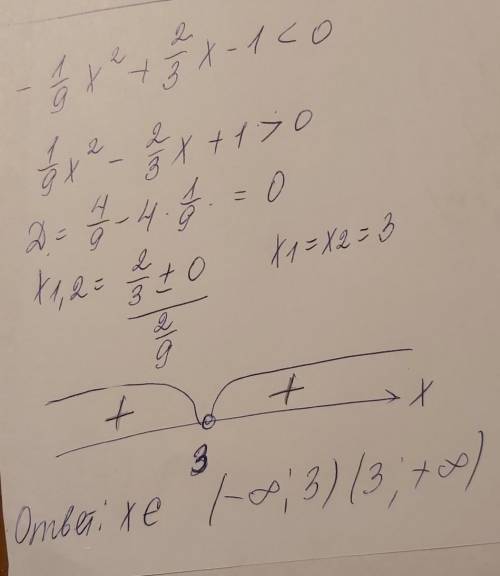 - 1/9 x² + 2/3 x - 1 < 0
1/9 x² - 2/3 x + 1 > 0
D. = 4/9 - 4 · 1/9 · = 0
x1,2 = (2/3 ± 0) / (2/9) x1 = x2 = 3
+ + x
3
Ответ: x ∈ (-∞; 3) (3; +∞)